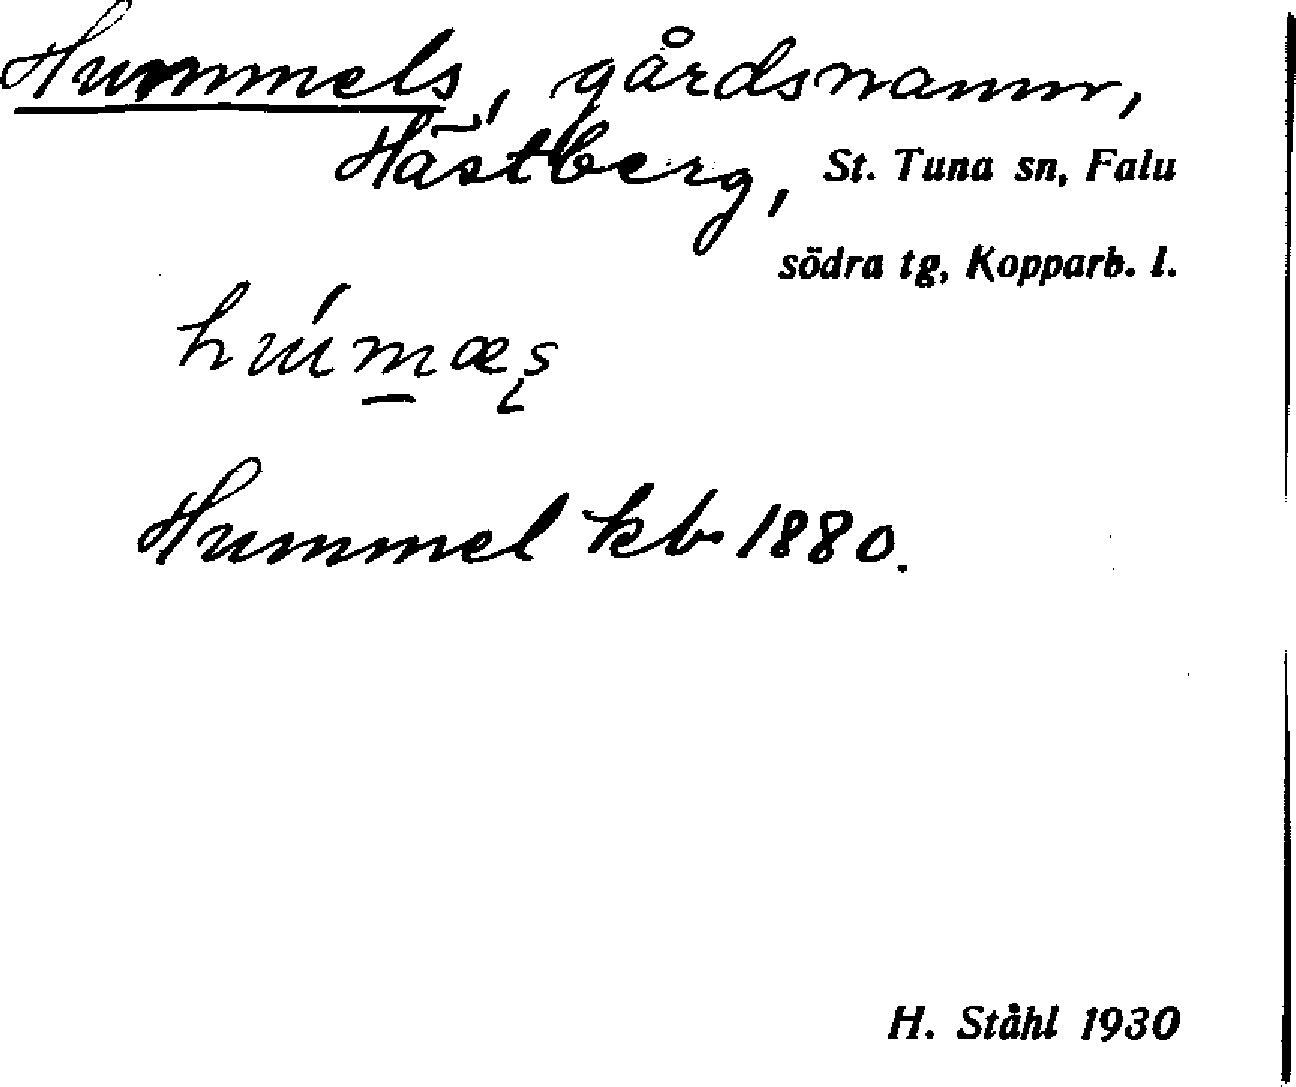 Hummels, gårdsnamn,
Hästberg, St. Tuna sn, Falu
södra tg, Kopparb. l.
Hummel kb 1880.
H. Ståhl 1930